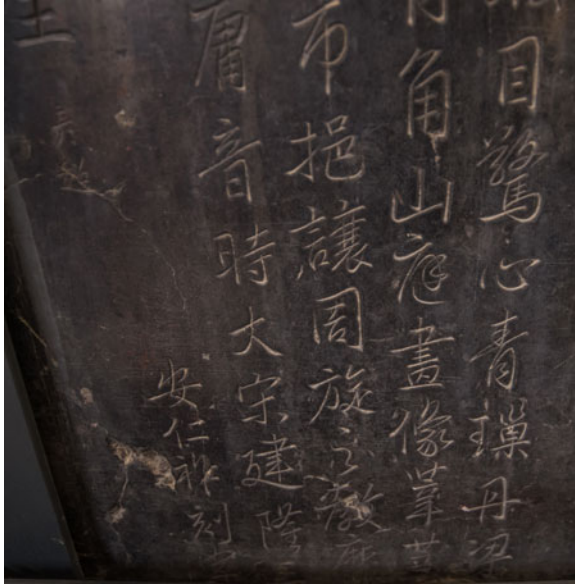 目驚心青璅丹梁
角山庭畫像
挹讓周旋示教
庸音時大宋建隆
安仁祚刻字